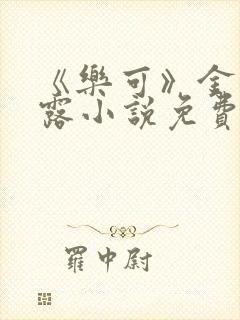 《樂可》金
露小說免費
羅中尉